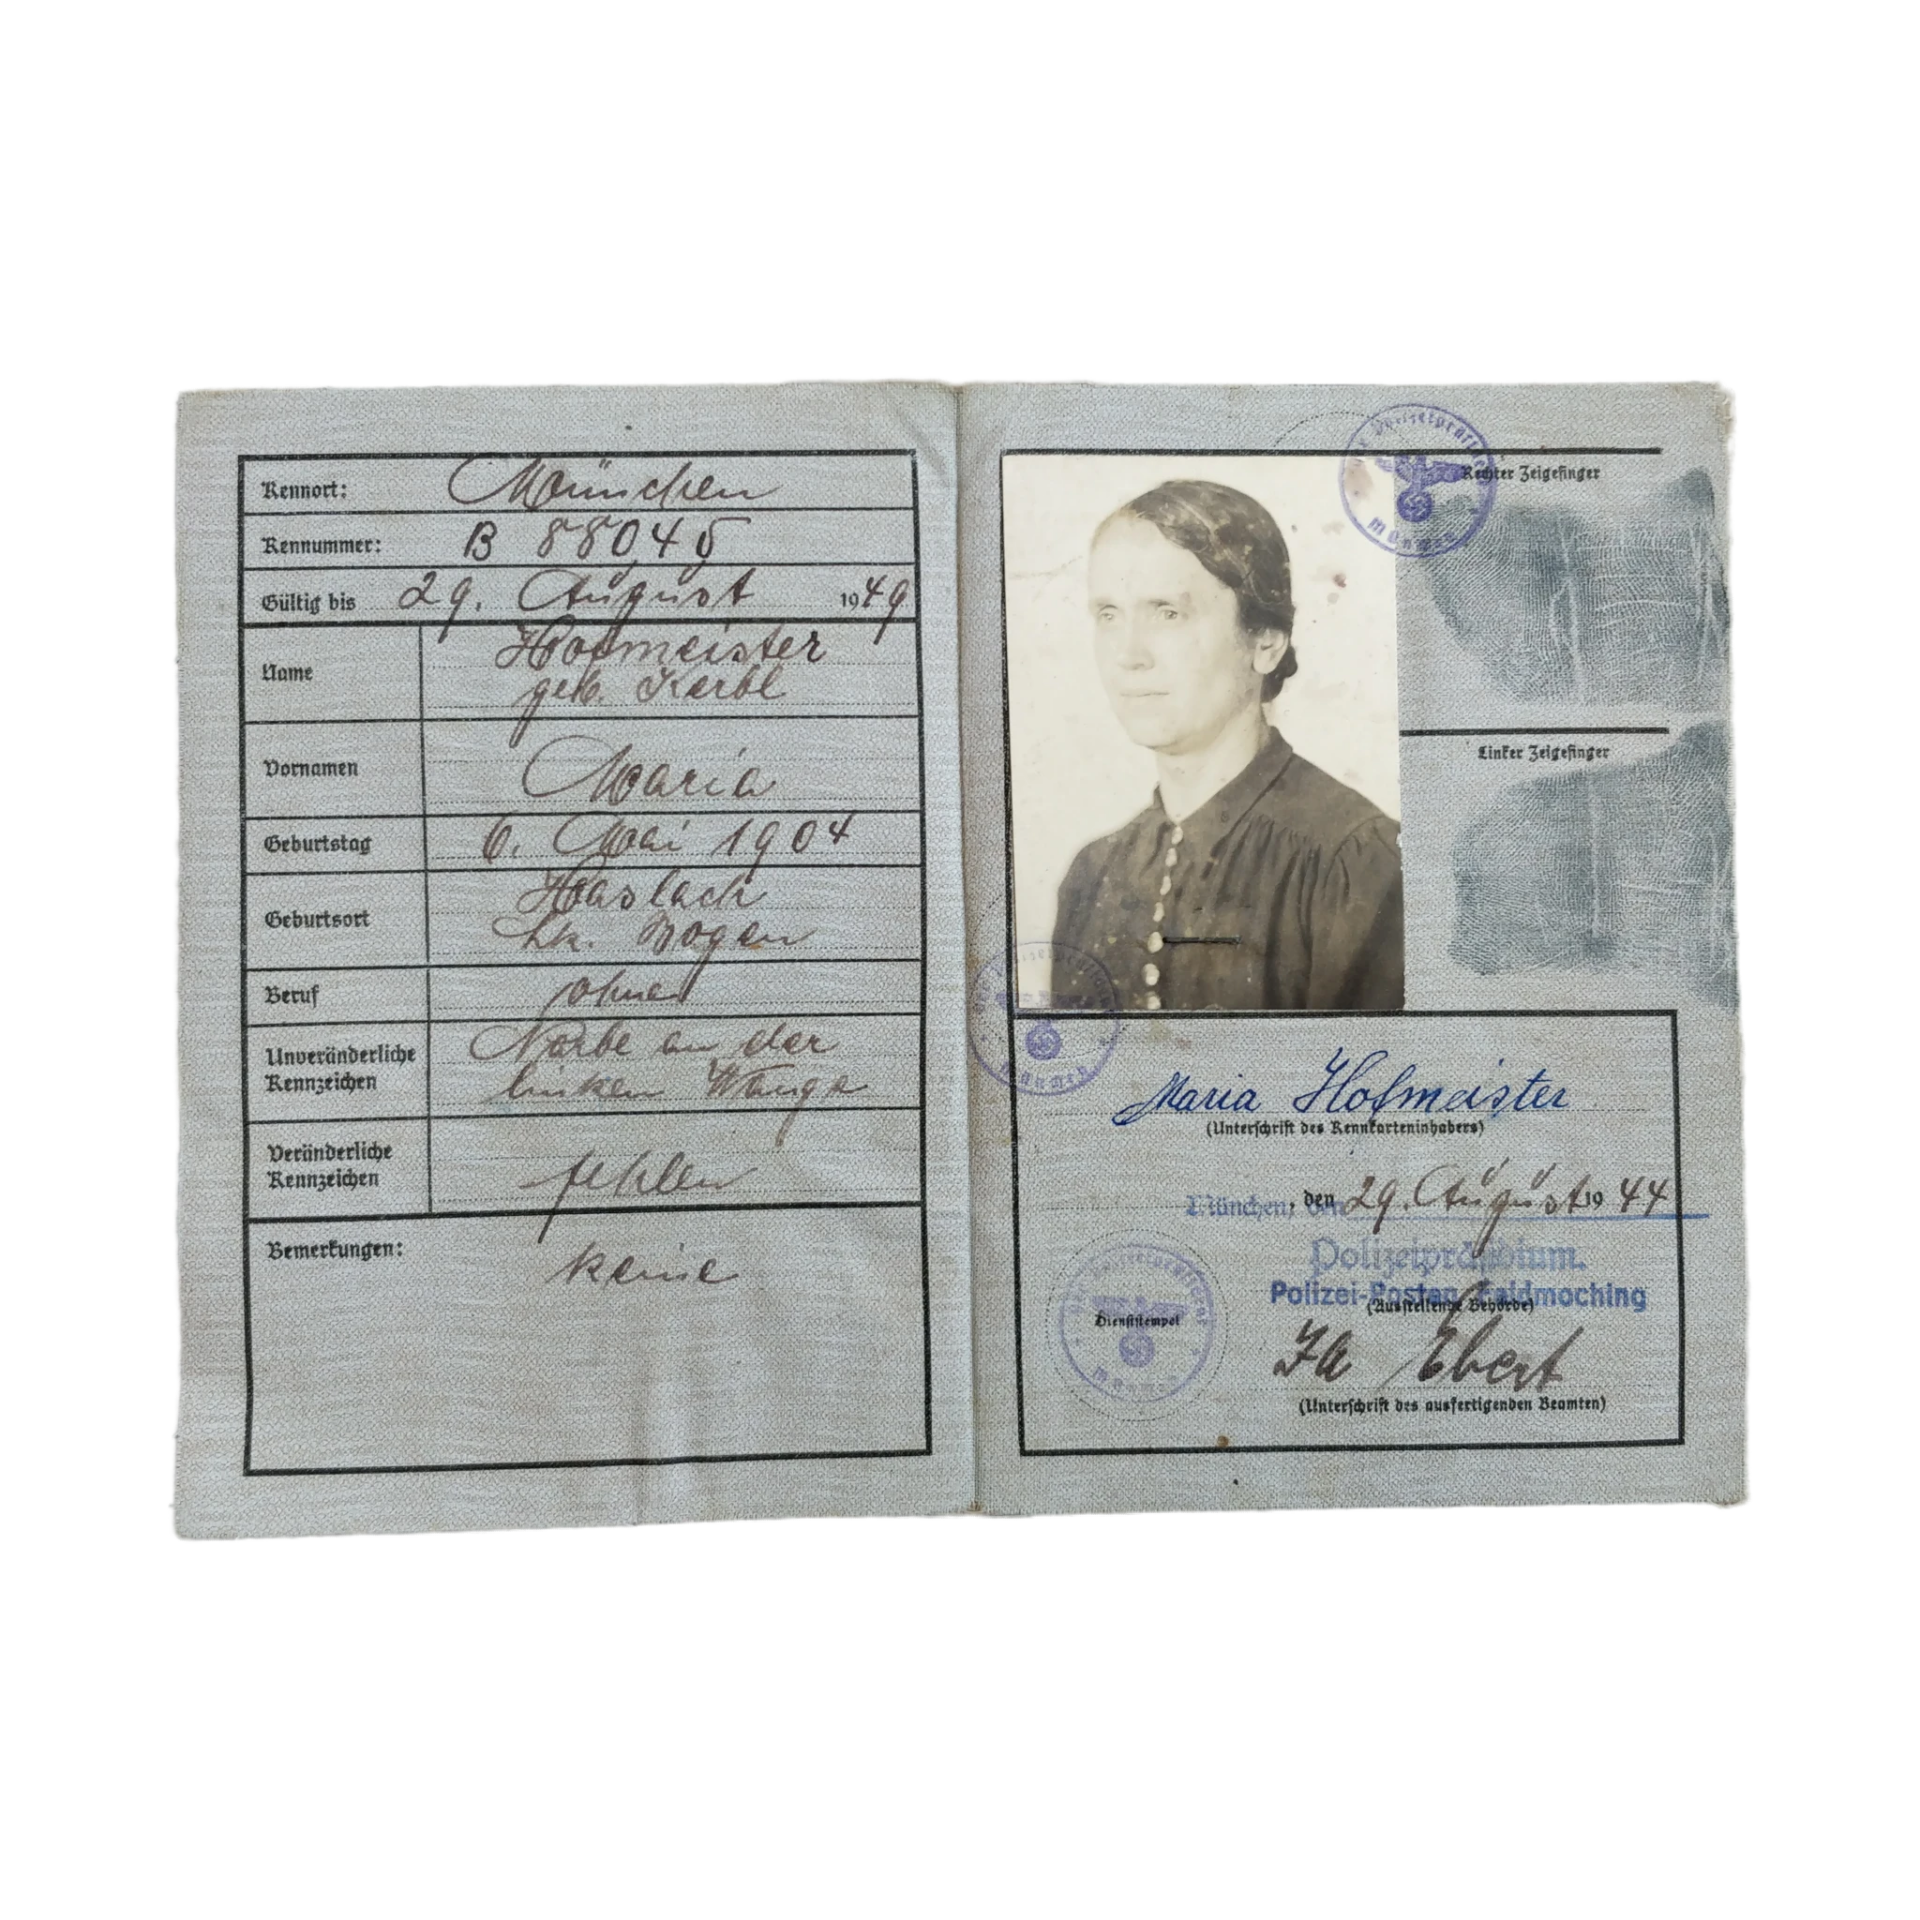 Kennort: München
Kennummer: B 88045
Gültig bis 29. August 1949
Name Hofmeister
geb. Kerbl
Vornamen Maria
Geburtstag 6. Mai 1904
Geburtsort Haslach
Lk. Bogen
Beruf ohne
Unveränderliche Kennzeichen Narbe an der
linken Wange
Veränderliche Kennzeichen fehlen
Bemerkungen: keine
Rechter Zeigefinger
Linker Zeigefinger
Maria Hofmeister
(Unterschrift des Kennkarteninhabers)
München, den 29. August 1944
Polizeipräsidium.
Polizei-Posten Feldmoching
(Ausstellende Behörde)
Dienststempel
München
Ebert
(Unterschrift des ausfertigenden Beamten)